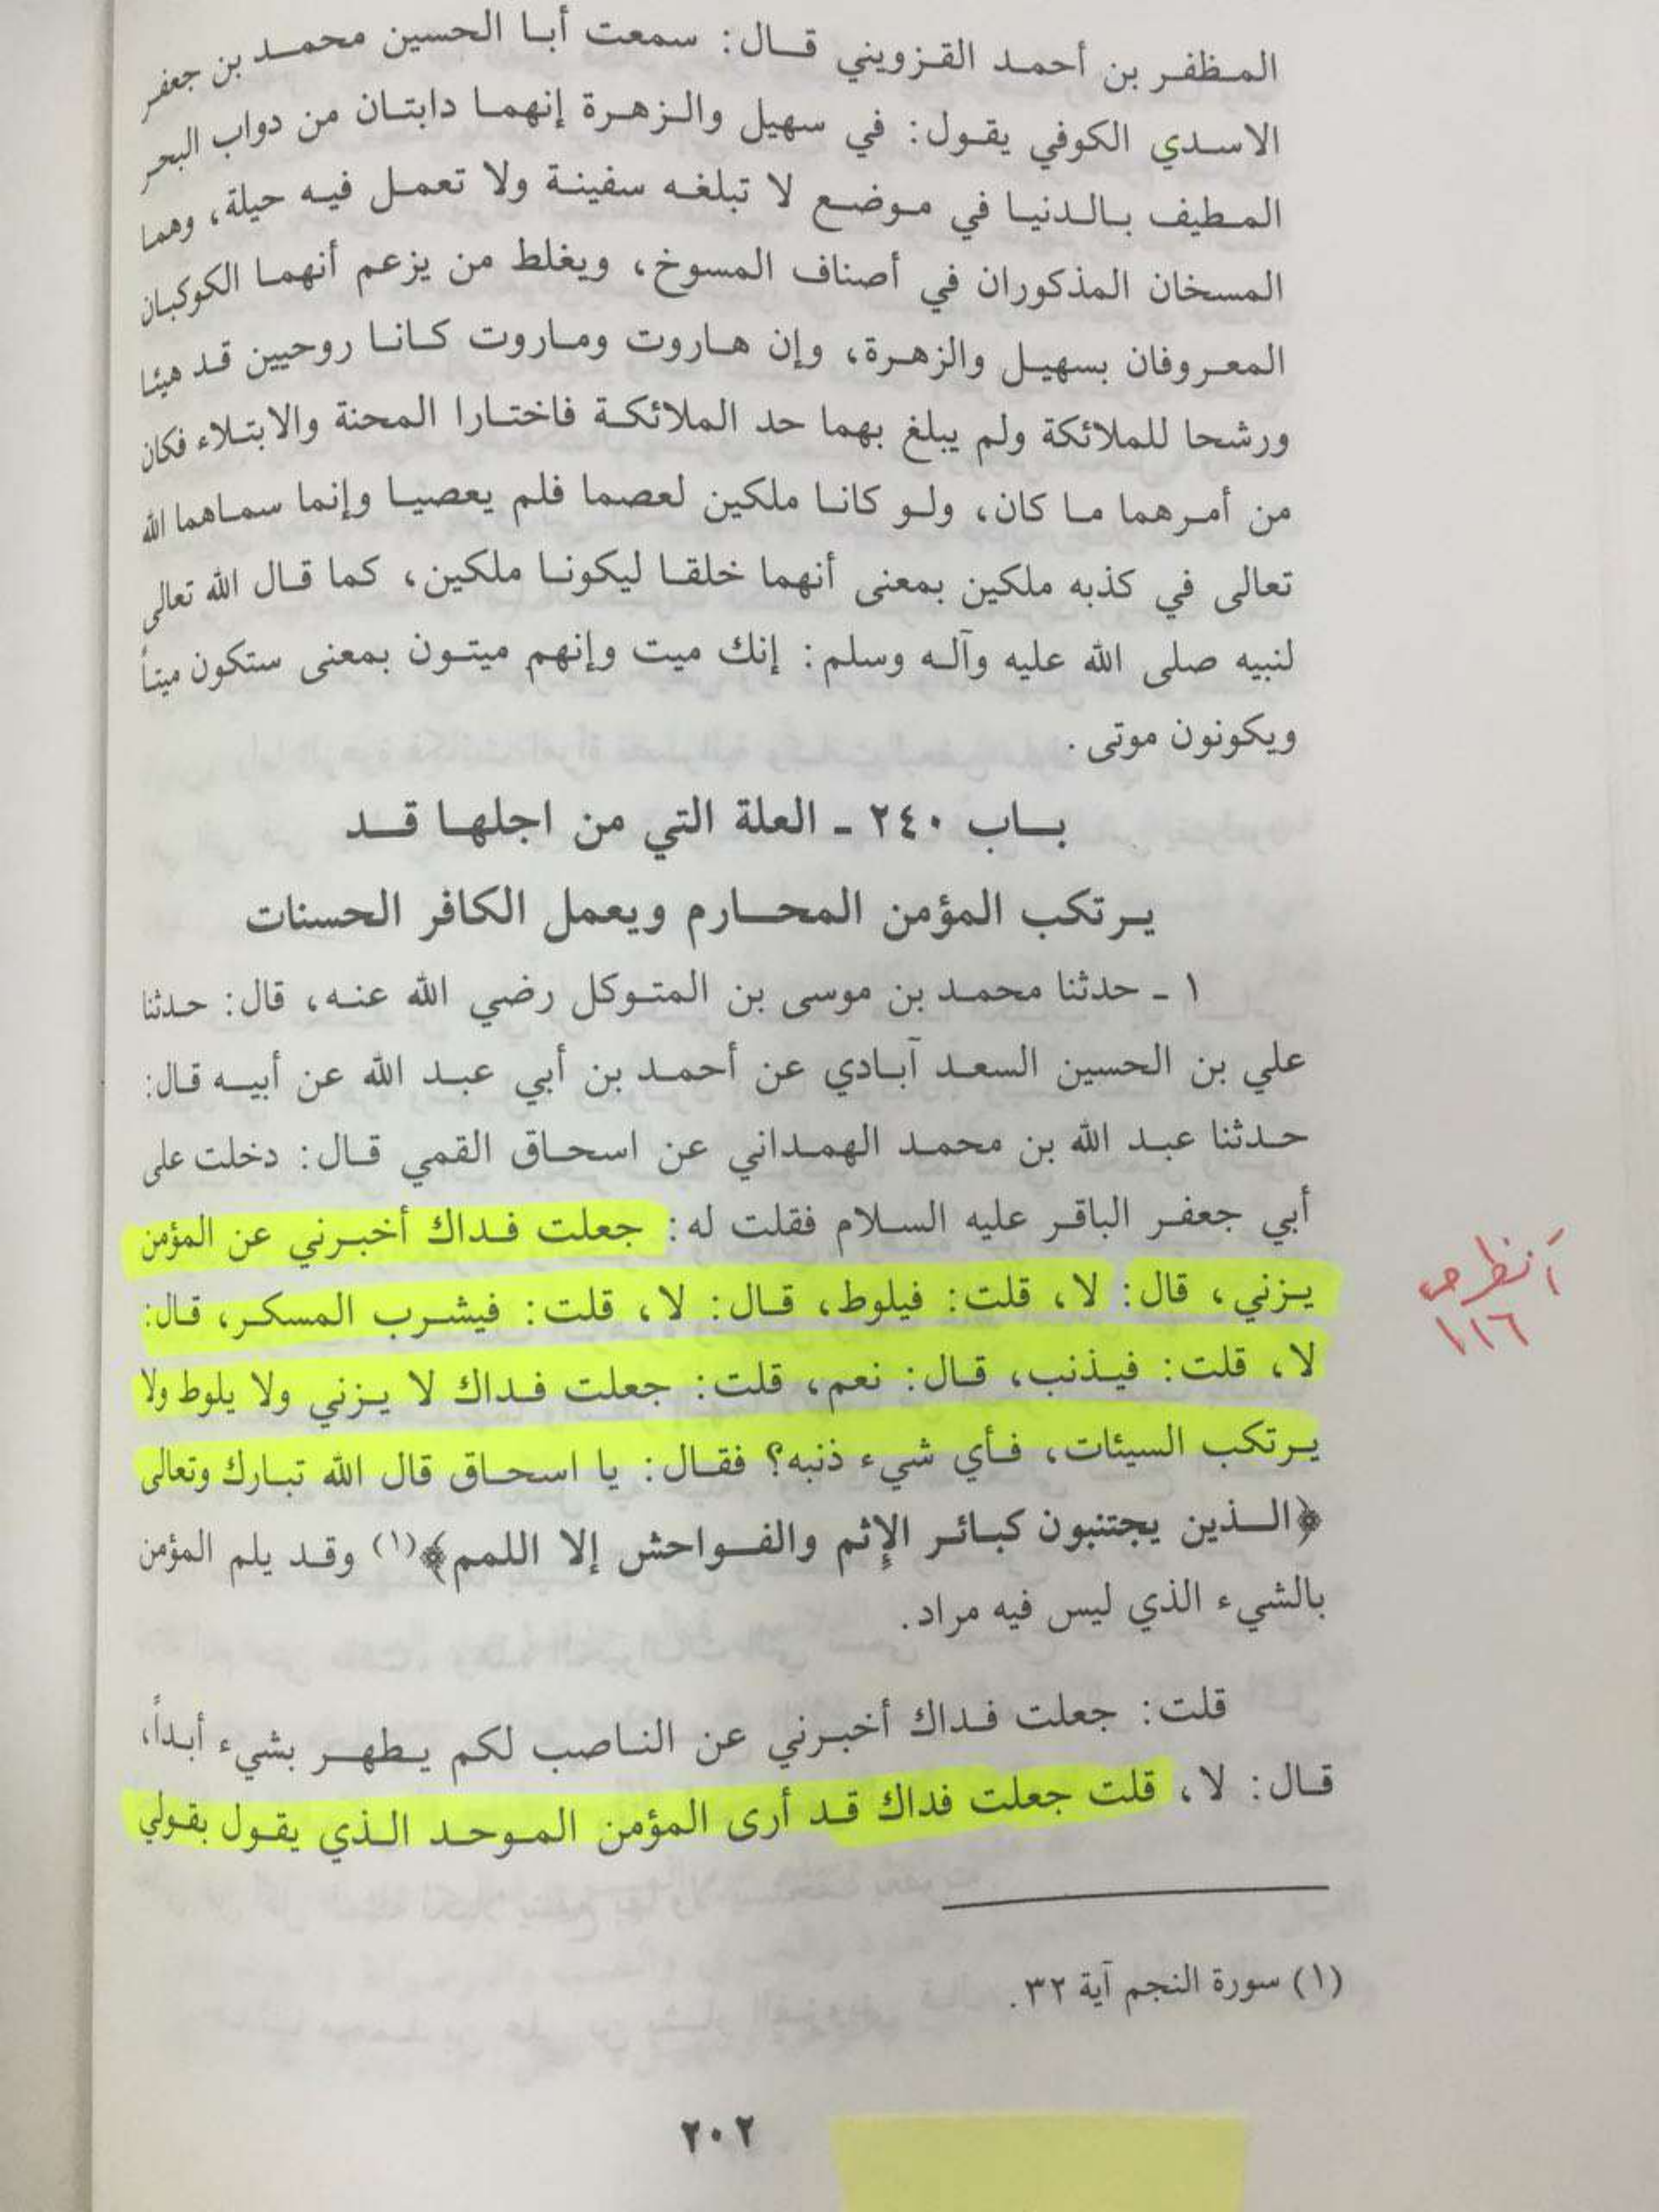 المظفر بن أحمد القزويني قال: سمعت أبا الحسين محمد بن جعفر
الاسدي الكوفي يقول: في سهيل والزهرة إنهما دابتان من دواب البحر
المطيف بالدنيا في موضع لا تبلغه سفينة ولا تعمل فيه حيلة، وهما
المسخان المذكوران في أصناف المسوخ، ويغلط من يزعم أنهما الكوكبان
المعروفان بسهيل والزهرة، وإن هاروت وماروت كانا روحيين قد هيئا
ورشحا للملائكة ولم يبلغ بهما حد الملائكة فاختارا المحنة والابتلاء فكان
من أمرهما ما كان، ولو كانا ملكين لعصما فلم يعصيا وإنما سماهما الله
تعالى في كذبه ملكين بمعنى أنهما خلقا ليكونا ملكين، كما قال الله تعالى
لنبيه صلى الله عليه وآله وسلم: إنك ميت وإنهم ميتون بمعنى ستكون ميتاً
ويكونون موتى.
باب ٢٤٠ ـ العلة التي من اجلها قد
يرتكب المؤمن المحارم ويعمل الكافر الحسنات
١ ـ حدثنا محمد بن موسى بن المتوكل رضي الله عنه، قال: حدثنا
علي بن الحسين السعد آبادي عن أحمد بن أبي عبد الله عن أبيه قال:
حدثنا عبد الله بن محمد الهمداني عن اسحاق القمي قال: دخلت على
أبي جعفر الباقر عليه السلام فقلت له: جعلت فداك أخبرني عن المؤمن
يزني، قال: لا، قلت: فيلوط، قال: لا، قلت: فيشرب المسكر، قال:
لا، قلت: فيذنب، قال: نعم، قلت: جعلت فداك لا يزني ولا يلوط ولا
يرتكب السيئات، فأي شيء ذنبه؟ فقال: يا اسحاق قال الله تبارك وتعالى
﴿الذين يجتنبون كبائر الإثم والفواحش إلا اللمم﴾(١) وقد يلم المؤمن
بالشيء الذي ليس فيه مراد.
قلت: جعلت فداك أخبرني عن الناصب لكم يطهر بشيء أبداً،
قال: لا، قلت جعلت فداك قد أرى المؤمن الموحد الذي يقول بقولي
(١) سورة النجم آية ٣٢.
٢٠٢
أنظر ص
١١٦